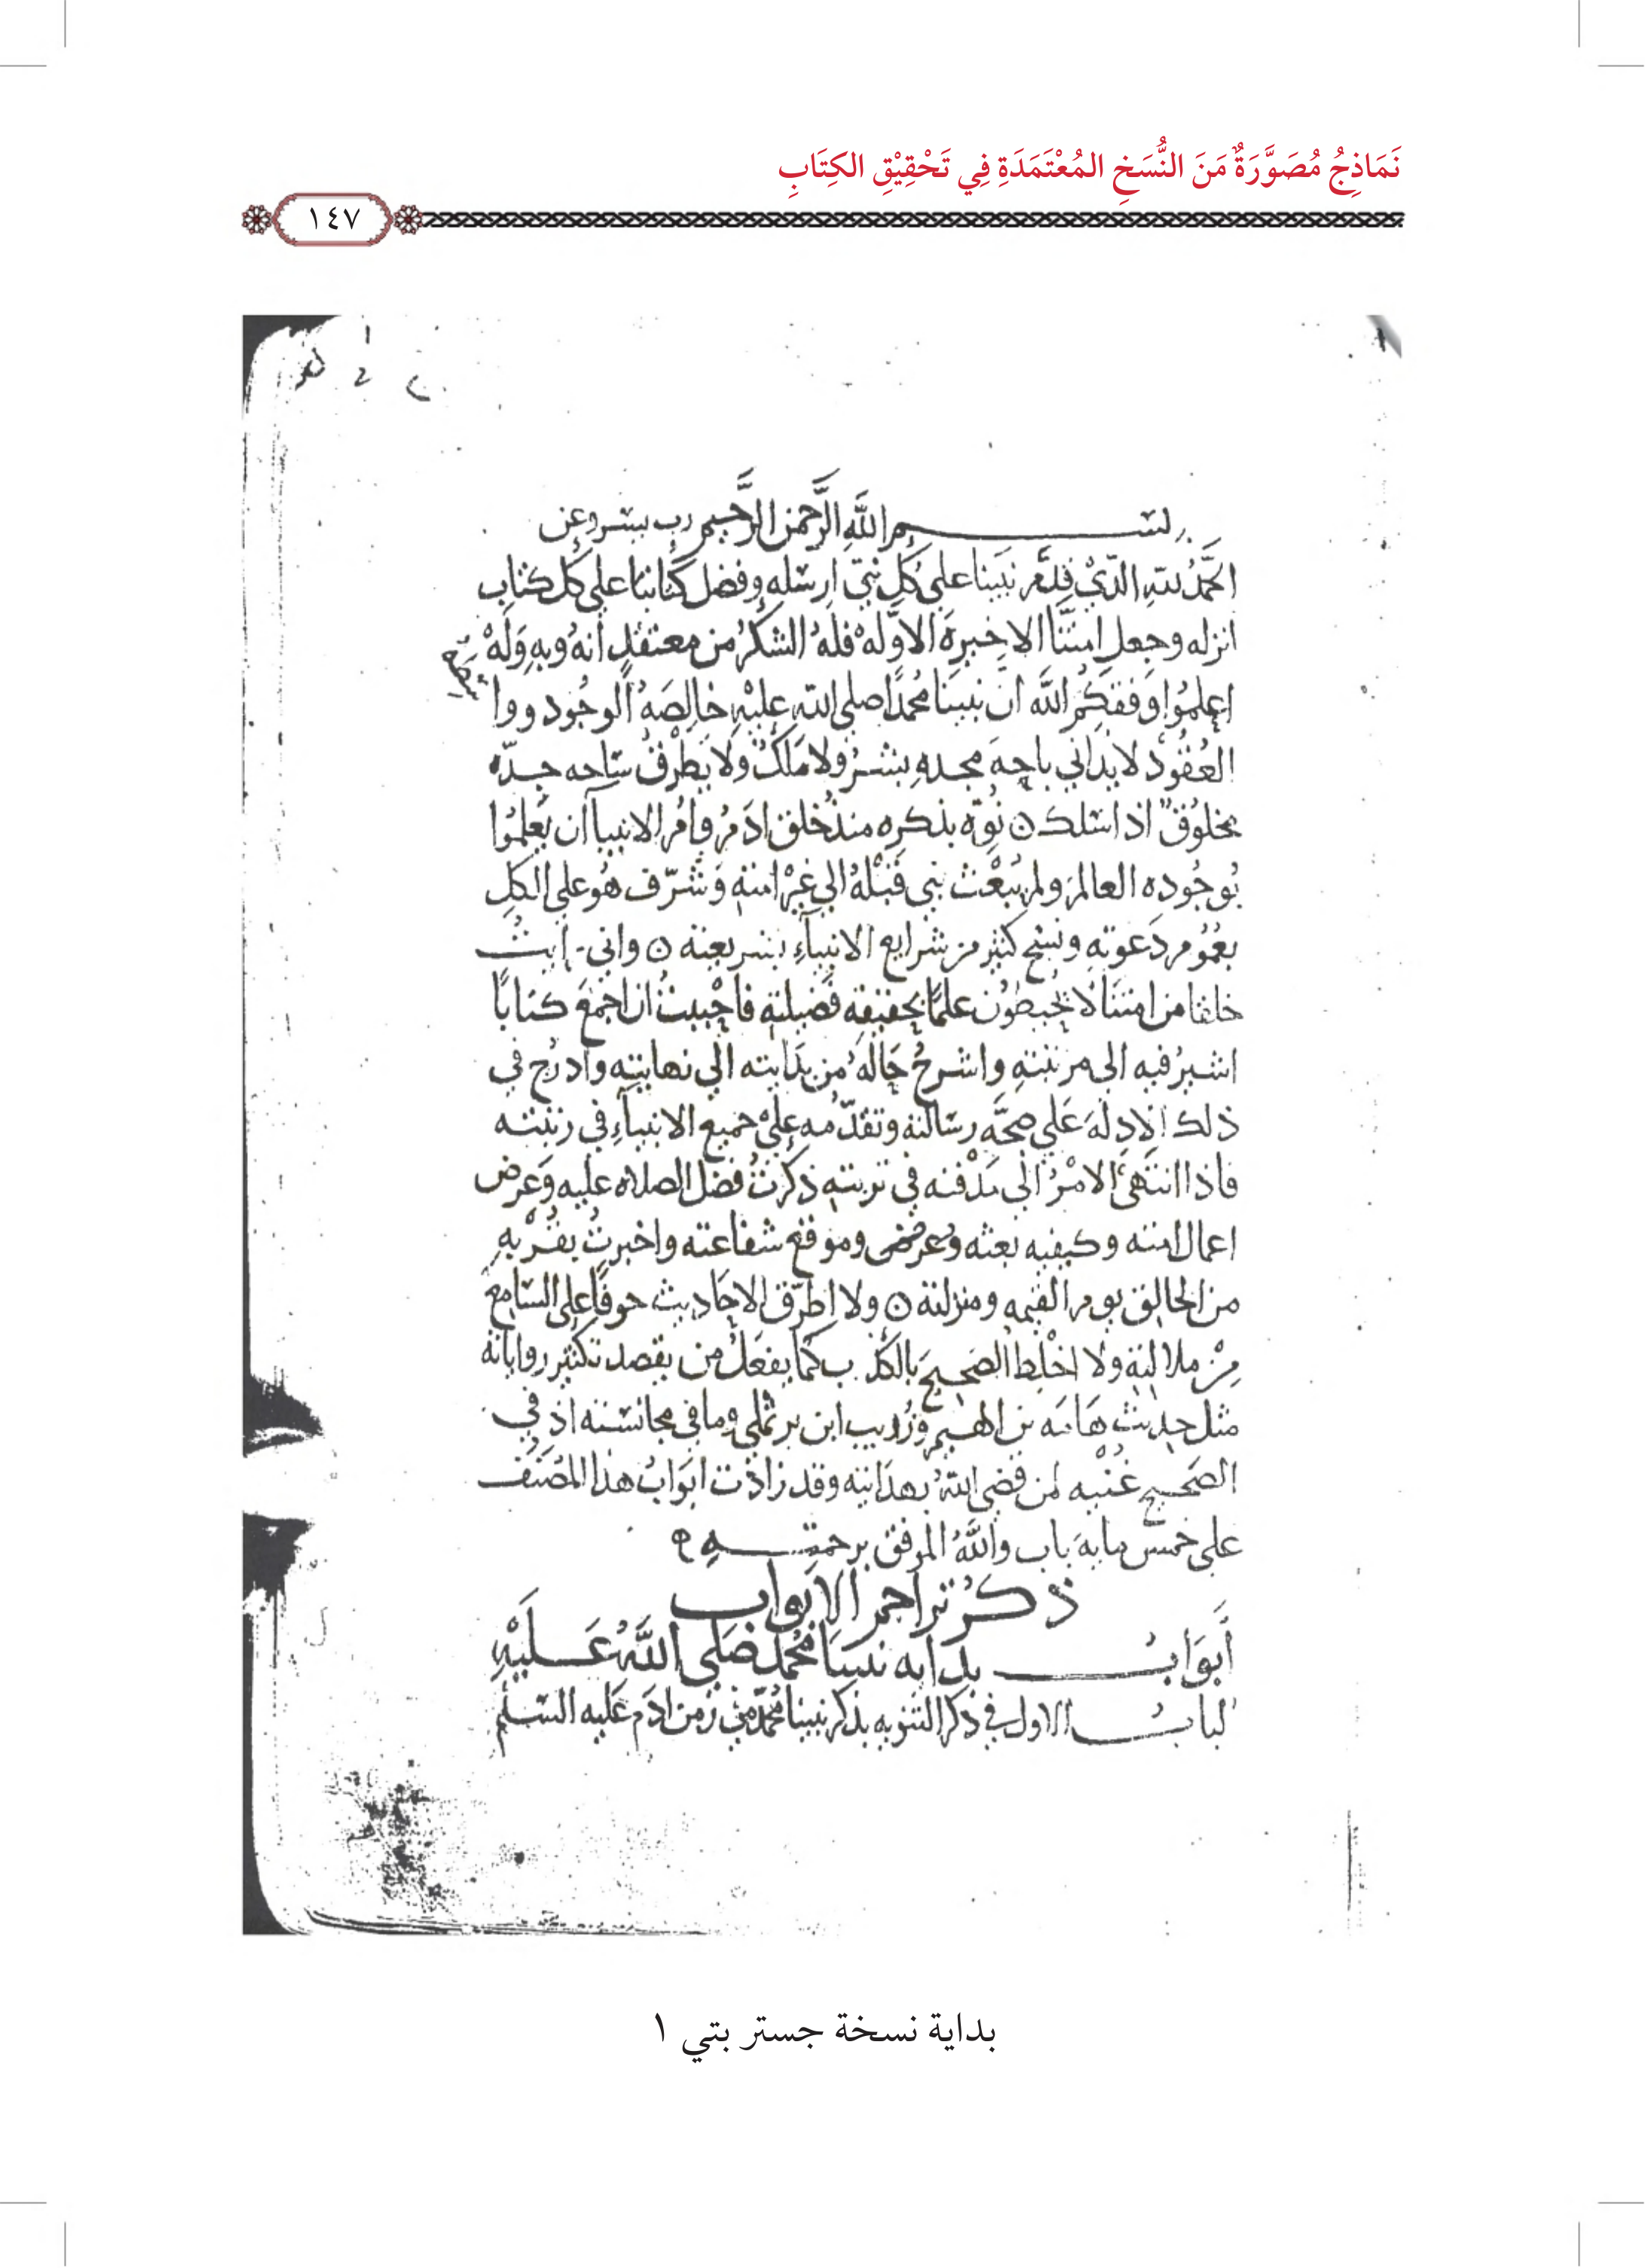 نَمَاذِجُ مُصَوَّرَةٌ مَنَ النُّسَخِ المُعْتَمَدَةِ فِي تَحْقِيْقِ الكِتَابِ
١٤٧
بسم اللَّه الرَّحمن الرَّحيم رب يسر وعن
الحمدُ لله الذي قدّم نبينا على كل نبيّ ارسله وفضل كتابنا على كل كتاب
انزله وجعل امتنا الاخيرة الاوّله فلهُ الشكرُ من معتقدٍ انهُ وبه وَلهْ
اعلمُوا وفقكم اللَّه انّ نبينا محمدًا صلى الله عليه خالصَهُ الوجُود ووا
العُقُود لا يداني باحة مجده بشرٌ ولا ملكٌ ولا يطرق ساحه جدّه
مخلوُقٌ اذا سلك ں نُوّه بذكره منذ خلق ادمُ وامُر الانبيا آن يعلموُا
بوجُوده العالم ولم يبعْث نبى قبْلهُ الي غيْر امته وشرّف هو على الكل
بعمُوم دَعوته ونسخ كثير من شرايع الانبيآء بشريعته ں وانى رايت
خلقا من امتنا لا يحيطوُن علمًا بحقيقة فضيلته فاحْببتُ ان اجمعَ كتابًا
اشيرُ فيه الى مرتبته واشرحُ حالهُ من بدايته الي نهايته وادرُج في
ذلك الادلةَ عَلي صحّه رسالته وتقدّمه عليْ جميع الانبيآء في رتبته
فاذا انتهىَ الامْرُ الى مدْفنه في تربته ذكرتُ فضل الصلاه عليه وعَرض
اعمال امته وكيفيه بعثه وموقع شفاعته واخبرتُ بقُرْبه
من الخالق يوم القيمه ومنزلته ں ولا اطرّق الاحَاديث خوفًا على السّامع
مِنْ ملالته ولا اخْلِط الصَحِيحَ بالكذب كما يفعَلُ من يقصد تكثير رواياته
مثل حديث هَامَه بن الهيم وزُريب ابن برثملي وما في مجانسته اذ في
الصَحيح غُنْيه لمن قضى اللهُ بهدَايته وقد زادت ابوابُ هذا المصَنَّف
على خمس مايه باب واللَّهُ الموفق برحمته ه
ذكرُ تراجم الابواب
أبوَابُ بدايه نبينَا محمدْ صَلى اللَّهُ عَليْهِ
لبابُ الاول في ذكر التنويه بذكر نبينا محمّدٍ من زمن ادَم عَليه السّلم
بداية نسخة جستر بتي ١